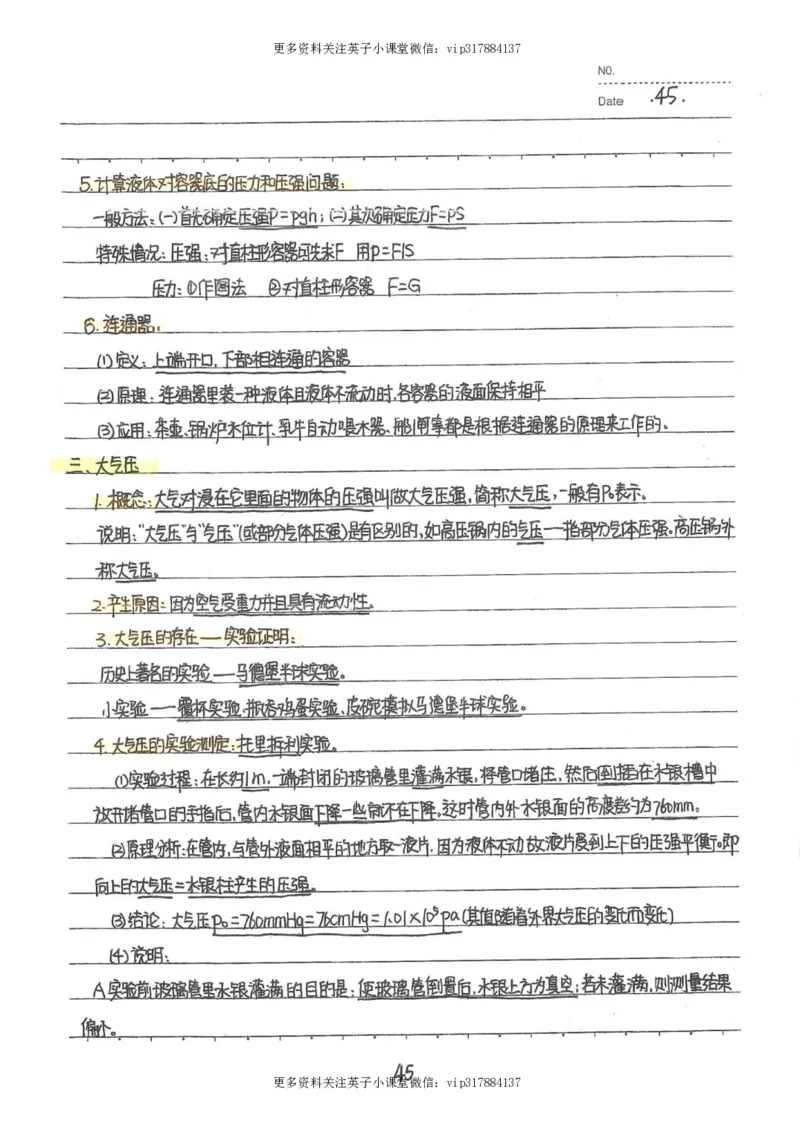 更多资料关注英子小课堂微信：vip317884137
NO.
Date .45.
5.计算液体对容器底的压力和压强问题：
一般方法：(一)首先确定压强P=ρgh；(二)其次确定压力F=pS
特殊情况：压强：对直柱形容器可先求F 用p=F/S
压力：①作图法 ②对直柱形容器 F=G
6.连通器：
(1)定义：上端开口，下部相连通的容器
(2)原理：连通器里装一种液体且液体不流动时，各容器的液面保持相平
(3)应用：茶壶、锅炉水位计、乳牛自动喂水器、船闸等都是根据连通器的原理来工作的。
三、大气压
1.概念：大气对浸在它里面的物体的压强叫做大气压强，简称大气压，一般有P₀表示。
说明："大气压"与"气压"(或部分气体压强)是有区别的，如高压锅内的气压——指部分气体压强。高压锅外
称大气压。
2.产生原因：因为空气受重力并且具有流动性。
3.大气压的存在——实验证明：
历史上著名的实验——马德堡半球实验。
小实验——覆杯实验、瓶吞鸡蛋实验、皮碗模拟马德堡半球实验。
4.大气压的实验测定：托里拆利实验。
(1)实验过程：在长约1m，一端封闭的玻璃管里灌满水银，将管口堵住，然后倒插在水银槽中
放开堵管口的手指后，管内水银面下降一些就不在下降，这时管内外水银面的高度差约为760mm。
(2)原理分析：在管内，与管外液面相平的地方取一液片，因为液体不动故液片受到上下的压强平衡。即
向上的大气压=水银柱产生的压强。
(3)结论：大气压p₀=760mmHg=76cmHg=1.01×10⁵pa(其值随着外界大气压的变化而变化)
(4)说明：
A实验前玻璃管里水银灌满的目的是：使玻璃管倒置后，水银上方为真空；若未灌满，则测量结果
偏小。
45
更多资料关注英子小课堂微信：vip317884137